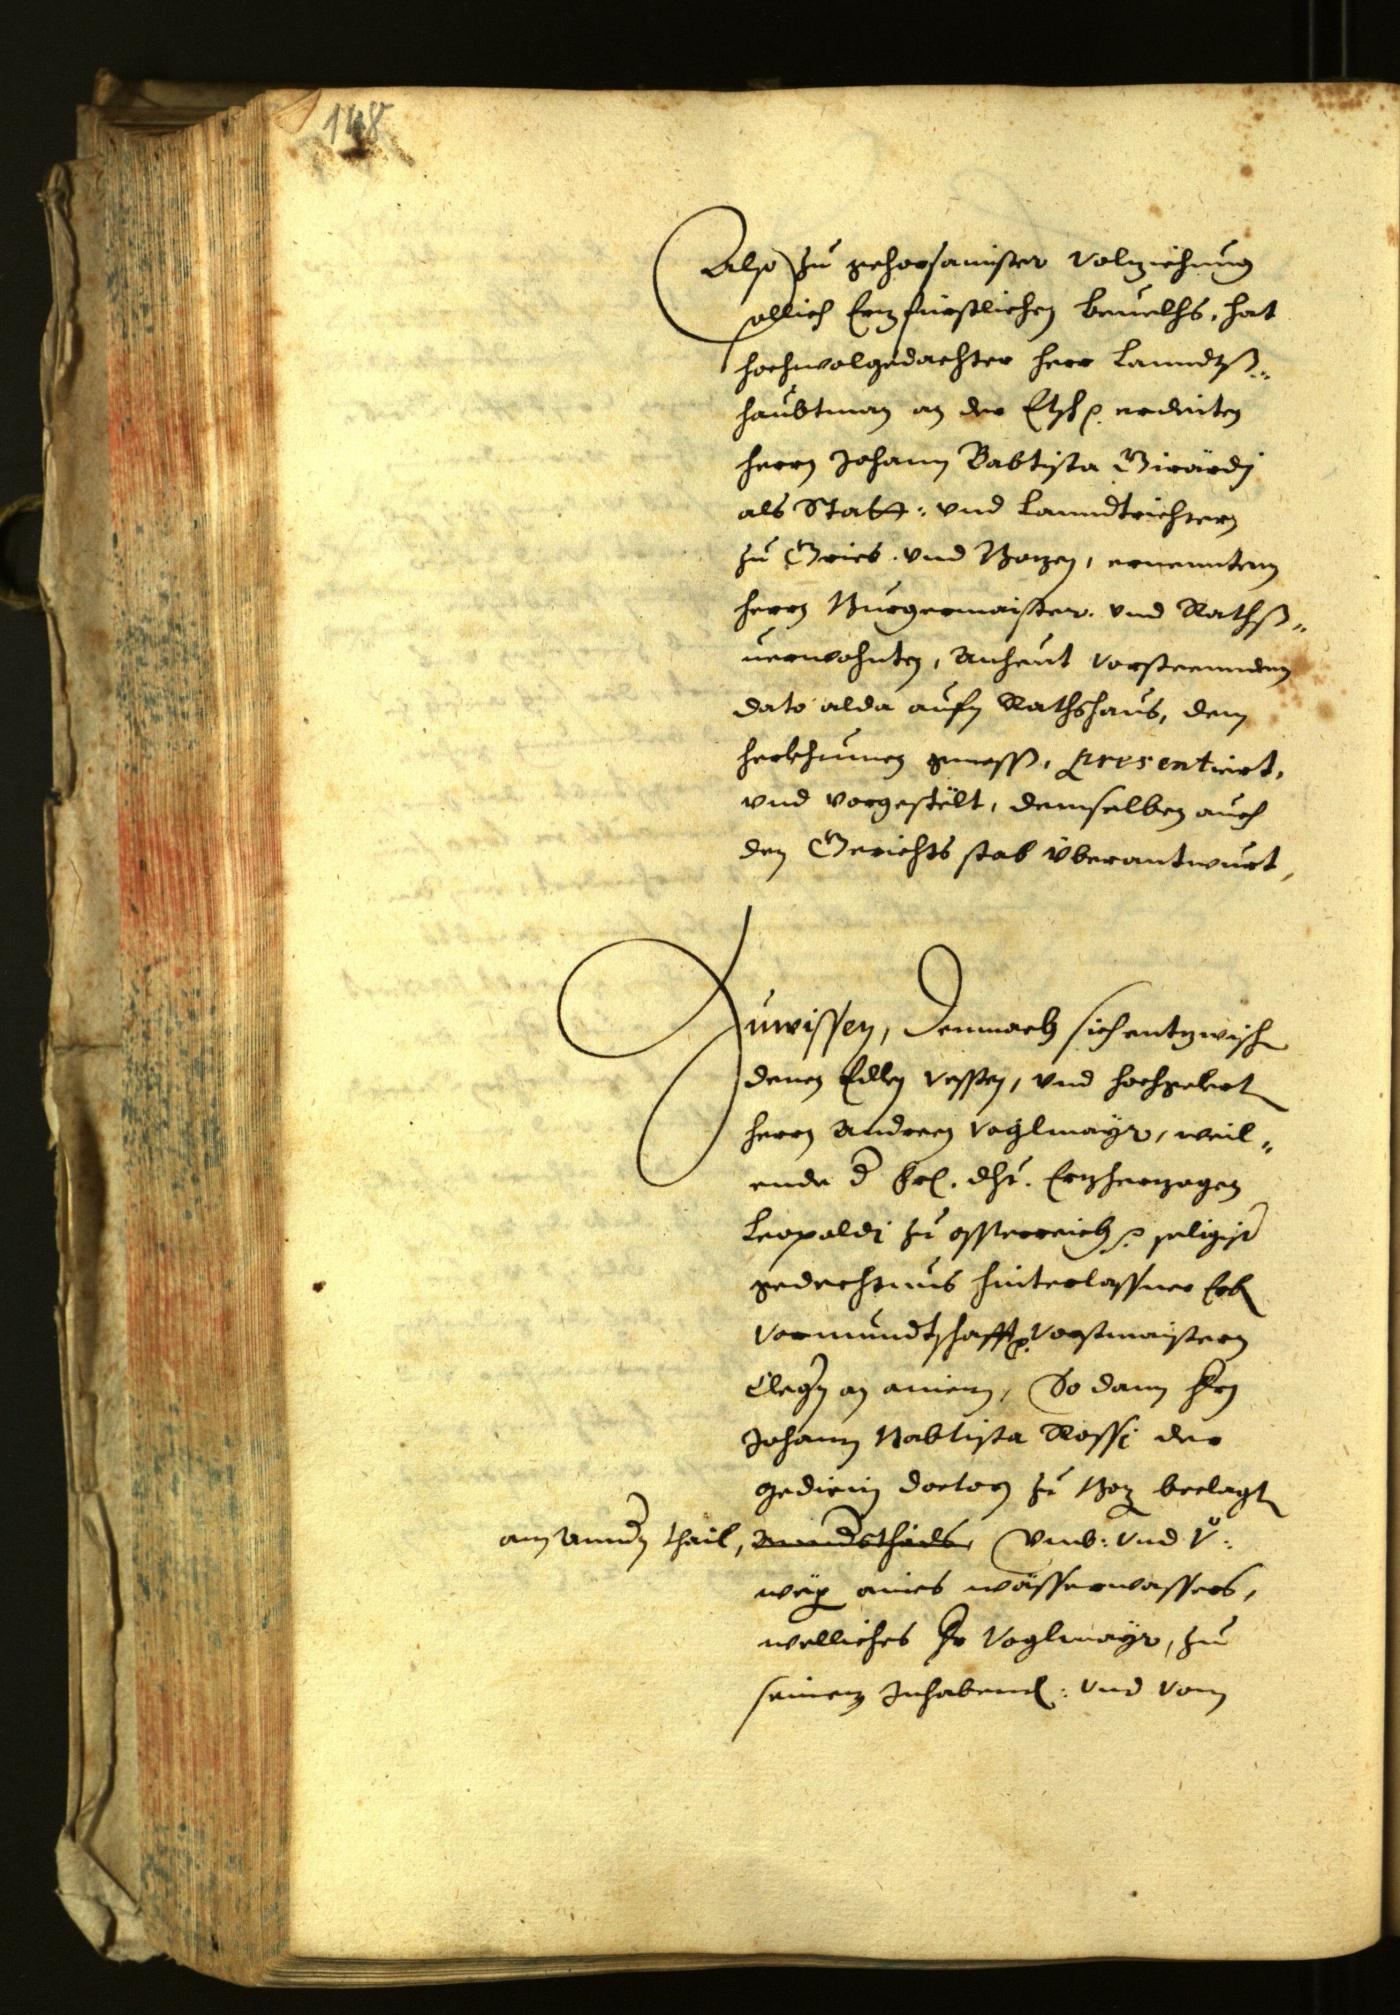 148
Also zu gehorsamister Volziehung
sollich Erzfürstlichen beuelhs, hat
hochwolgedachter herr Lanndtß-
haubtman an der Etsch p. erdeiten
herrn Johann Babtista Girardj
als Statt: und Lanndtrichtern
zu Gries. und Bozen, ernenntem
herrn Burgermaister. und Rathß-
uerwohnten, Anheut Vorsteenndem
dato alda aufm Rathshaus, dem
herkhumen gemess, presentiert,
und vorgestelt, demselben auch
den Gerichts stab überantwurt,
Zuwissen, Demnach sich entzwisch
denen Edlen Vessten, und hochgelert
herrn Andreen Voglmayr, weil-
ende d Frl. dht. Erzherzogen
Leopoldj zu Össterreich p. seligist
gedechtnus hinterlassner Erb
Vormundtschafft p. Vorstmaistern
Clegern an ainem, So dann hrn
Johann Babtista Rossi der
gedienj doctorn zu Boz beclagt
am Anndn thail, Anndsthails, Umb: Und V:
weg aines wässerwassers,
welliches Hr Voglmayr, zu
seinem Inhabend: Und Vom